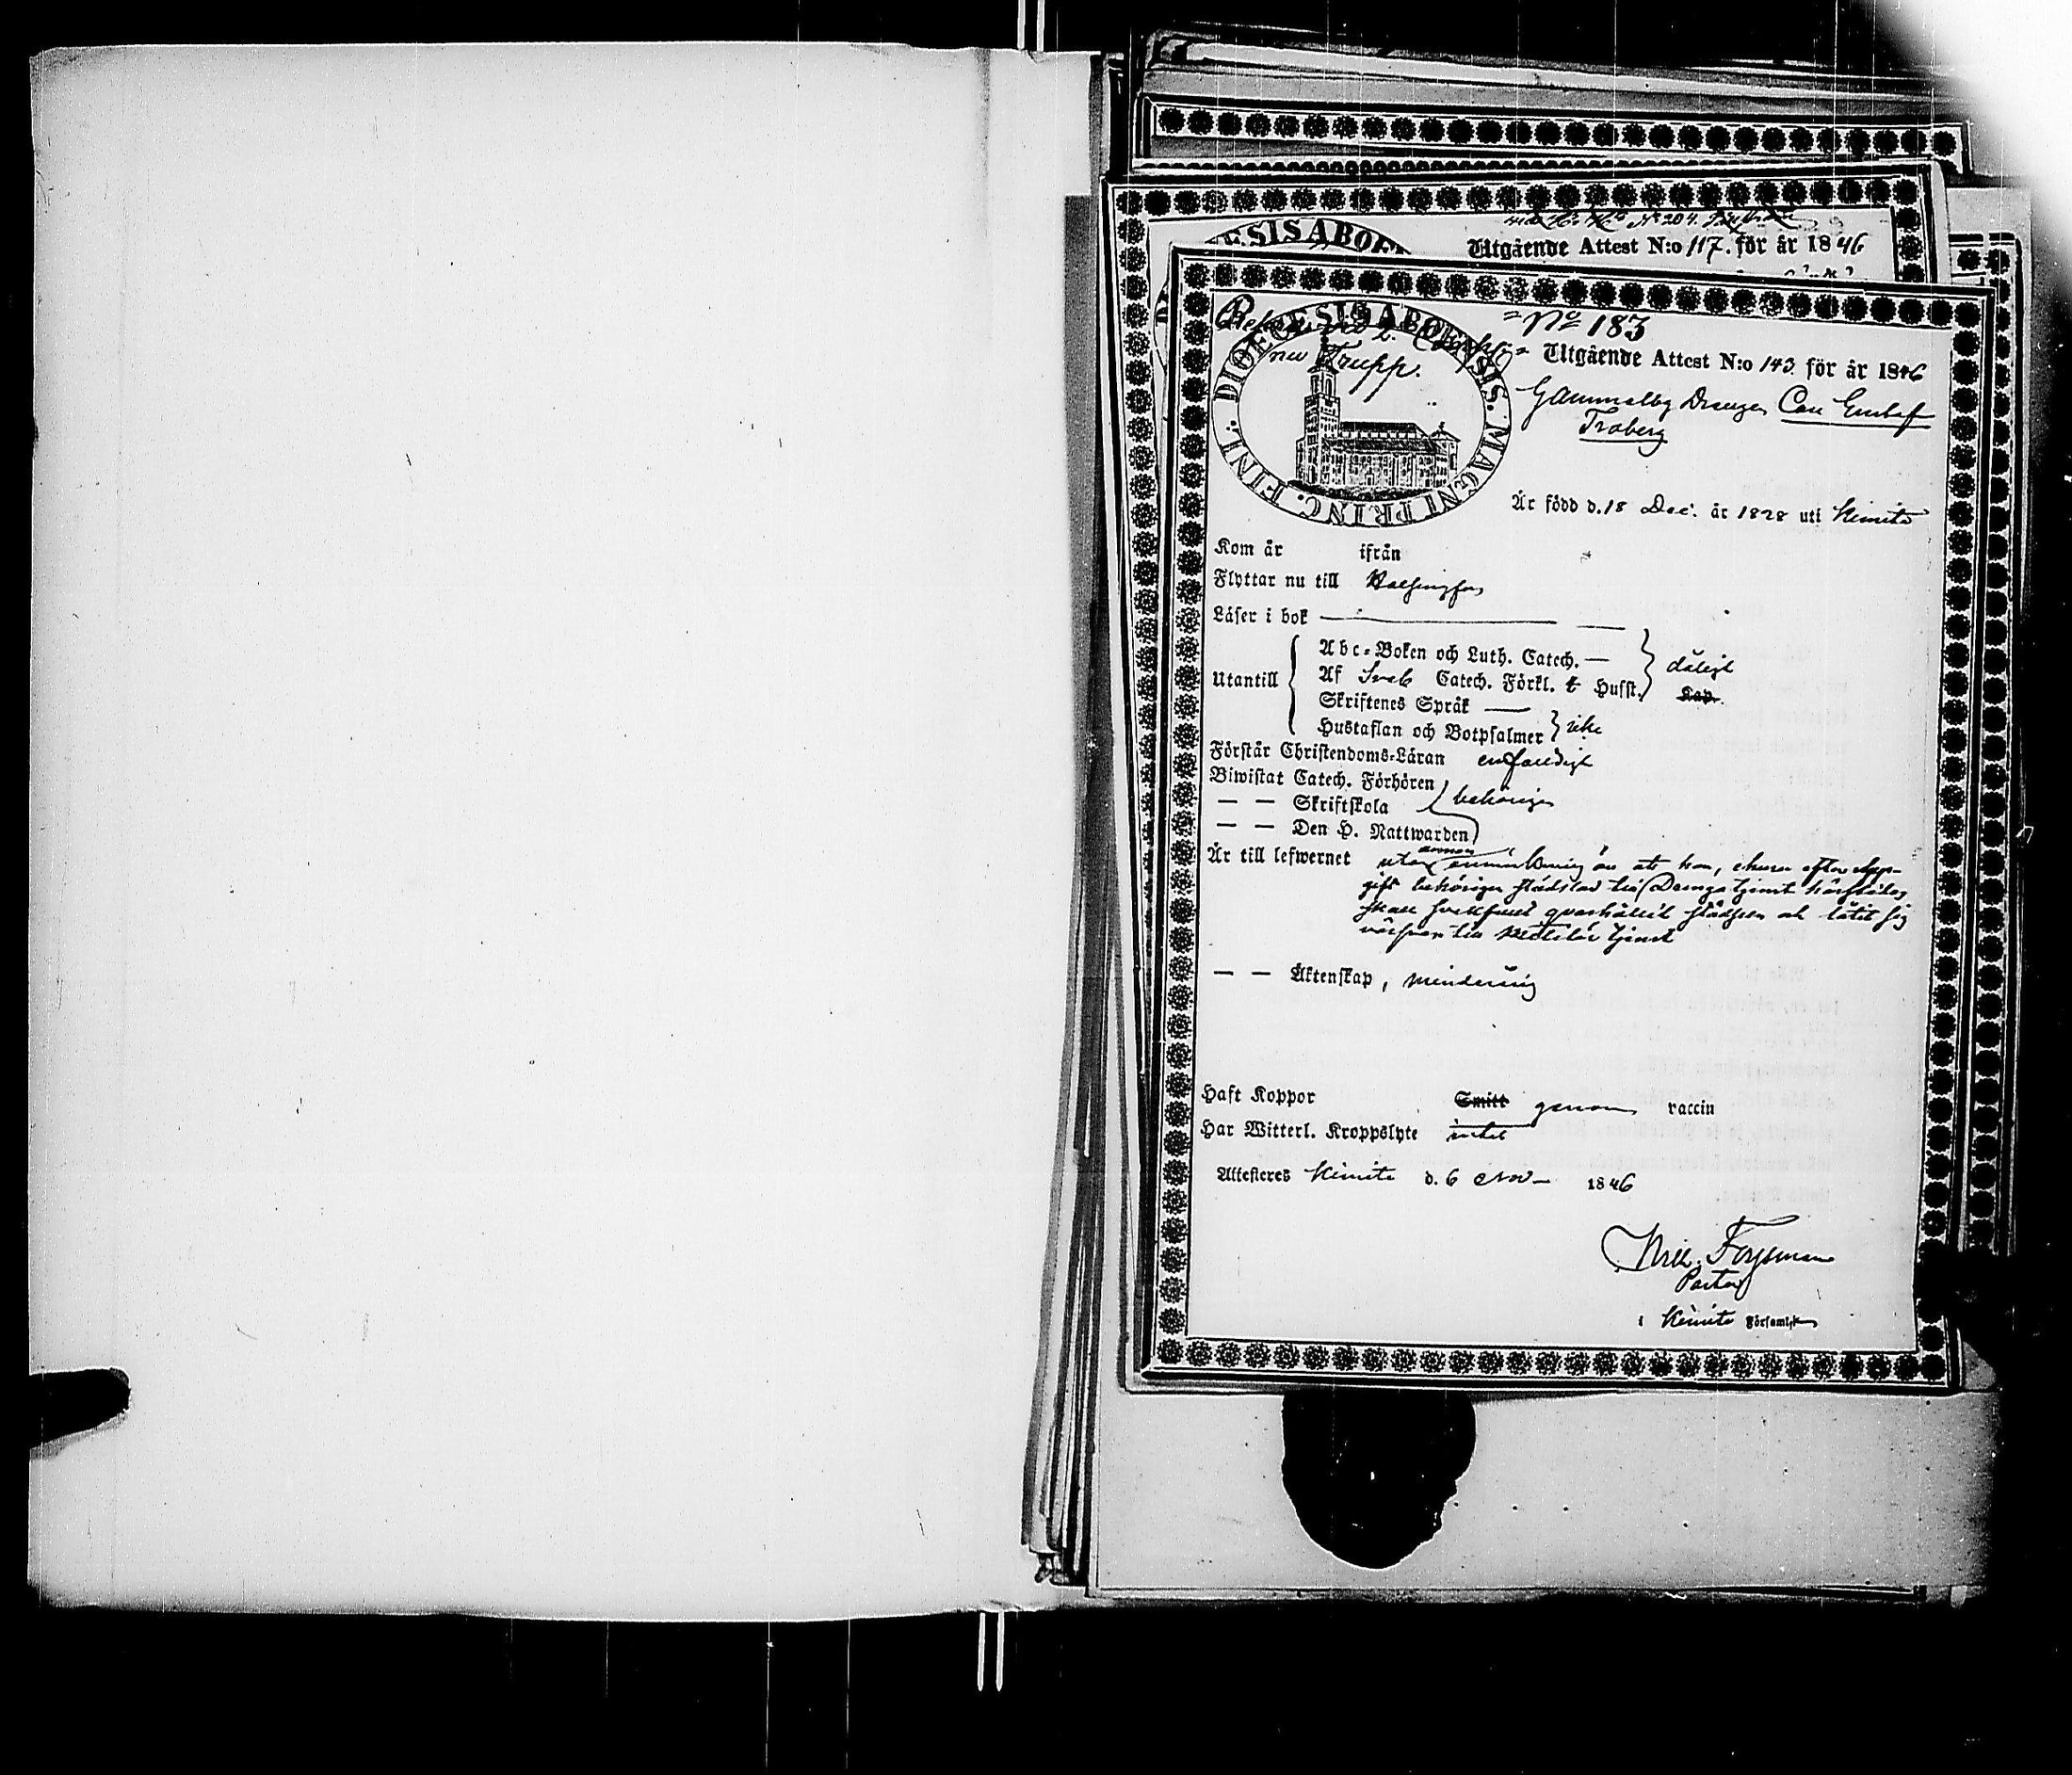 ESIS ABOEN
N:o 204.
Utgående Attest N:o 117. för år 1846
DIOECESIS ABOENSIS. MAGNI PRINC. FINL.
2.
nu Trupp.
=No 183
Utgående Attest N:o 143. för år 1846
Gammalby Drengen Carl Gustaf
Troberg
Är född d. 18 Dec. år 1828 uti Kimito
Kom år ifrån
Flyttar nu till Helsingfors
Läser i bok
Utantill
Abc-Boken och Luth. Catech. —
Af Sveb Catech. Förkl. & Husst. dåligt
Kap.
Skriftenes Språk —
Hustaflan och Botpsalmer icke
Förstår Christendoms-Läran enfaldigt
Biwistat Catech. Förhören
— — Skriftskola behörigen
— — Den H. Nattwarden
Är till lefwernet utan annan anmärkning än att han, ehuru efter upp-
gift behörigen städslad till Drengatjenst härstädes
skall qvarhållit städseln och låtit sig
värfvas till Militär tjenst
— — Äktenskap, minderårig
Haft Koppor Smitt genom vaccin
Har Witterl. Kroppslyte intet
Attesteras Kimito d. 6 Nov 1846
Wilh. Forssman
Pastor
i Kimito Församl.